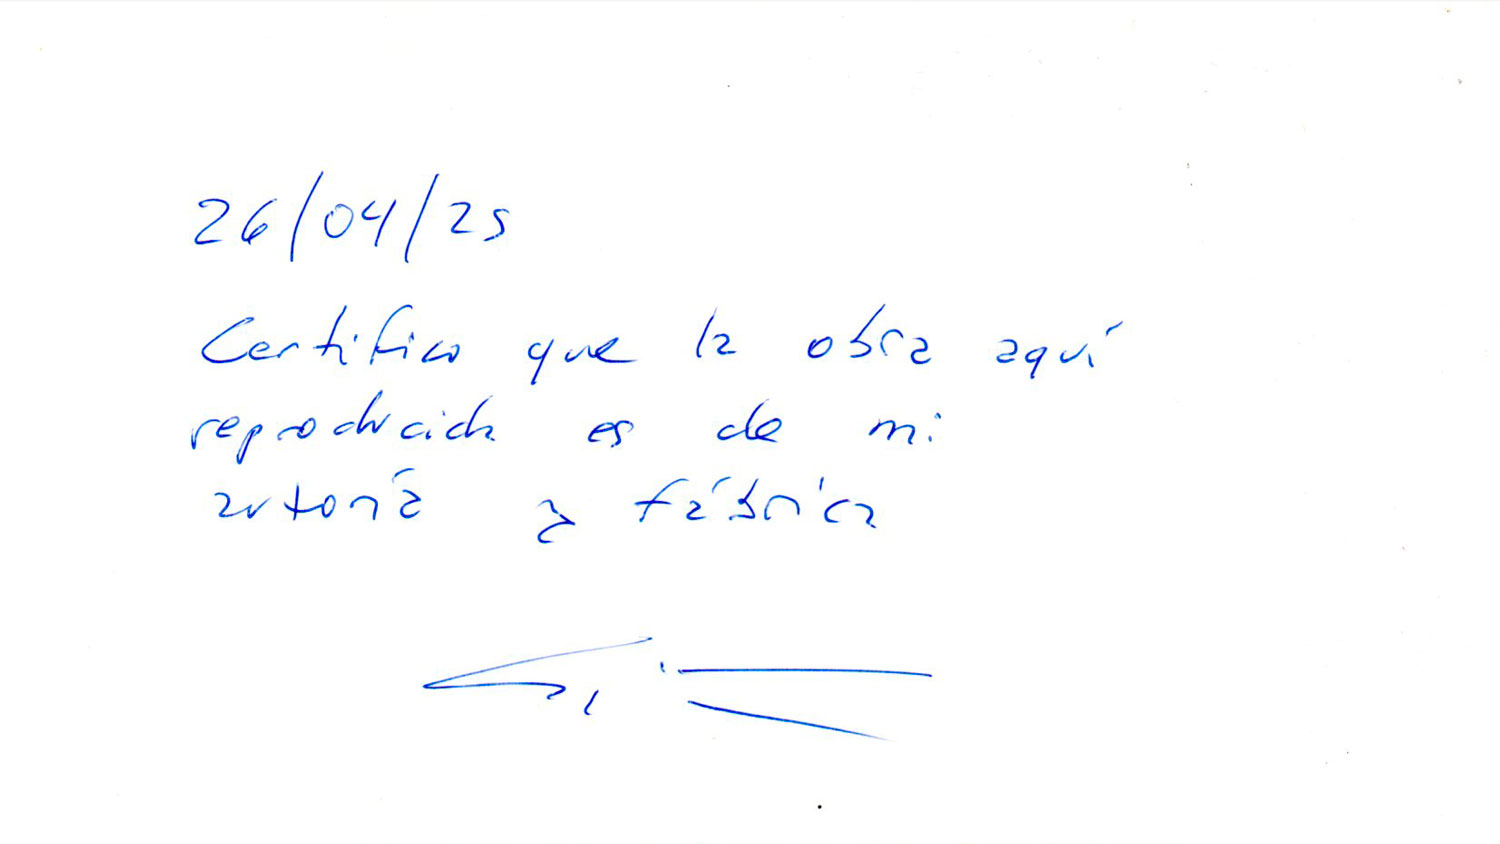 26/04/25
Certifico que la obra aquí
reproducida es de mi
autoría y fábrica